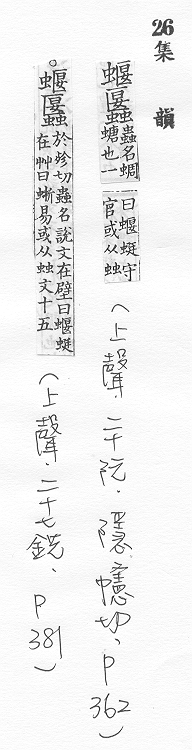 26 集 韻
蝘 蟲名蜩
螗也一
曰蝘蜓守
官或从䖵
(上聲.二十阮.隱幰切、P362)
○蝘 於殄切蟲名說文在壁曰蝘蜓
在艸曰蜥易或从䖵文十五
(上聲.二十七銑、P381)